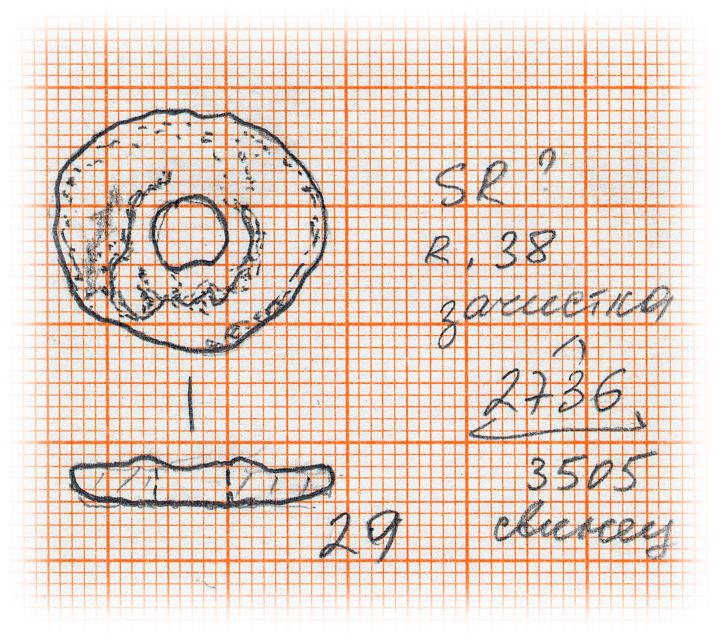 SR ?
R. 38
зачистка
2736
3505
свинец
29